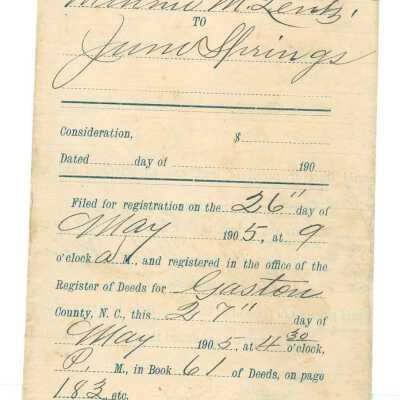 Minnie M. Lentz,
TO
June Springs
Consideration, $
Dated day of 190
Filed for registration on the 26" day of
May 1905, at 9
o'clock a M., and registered in the office of the
Register of Deeds for Gaston
County, N. C., this 27" day of
May 1905, at 4 30 o'clock,
P. M., in Book 61 of Deeds, on page
183, etc.